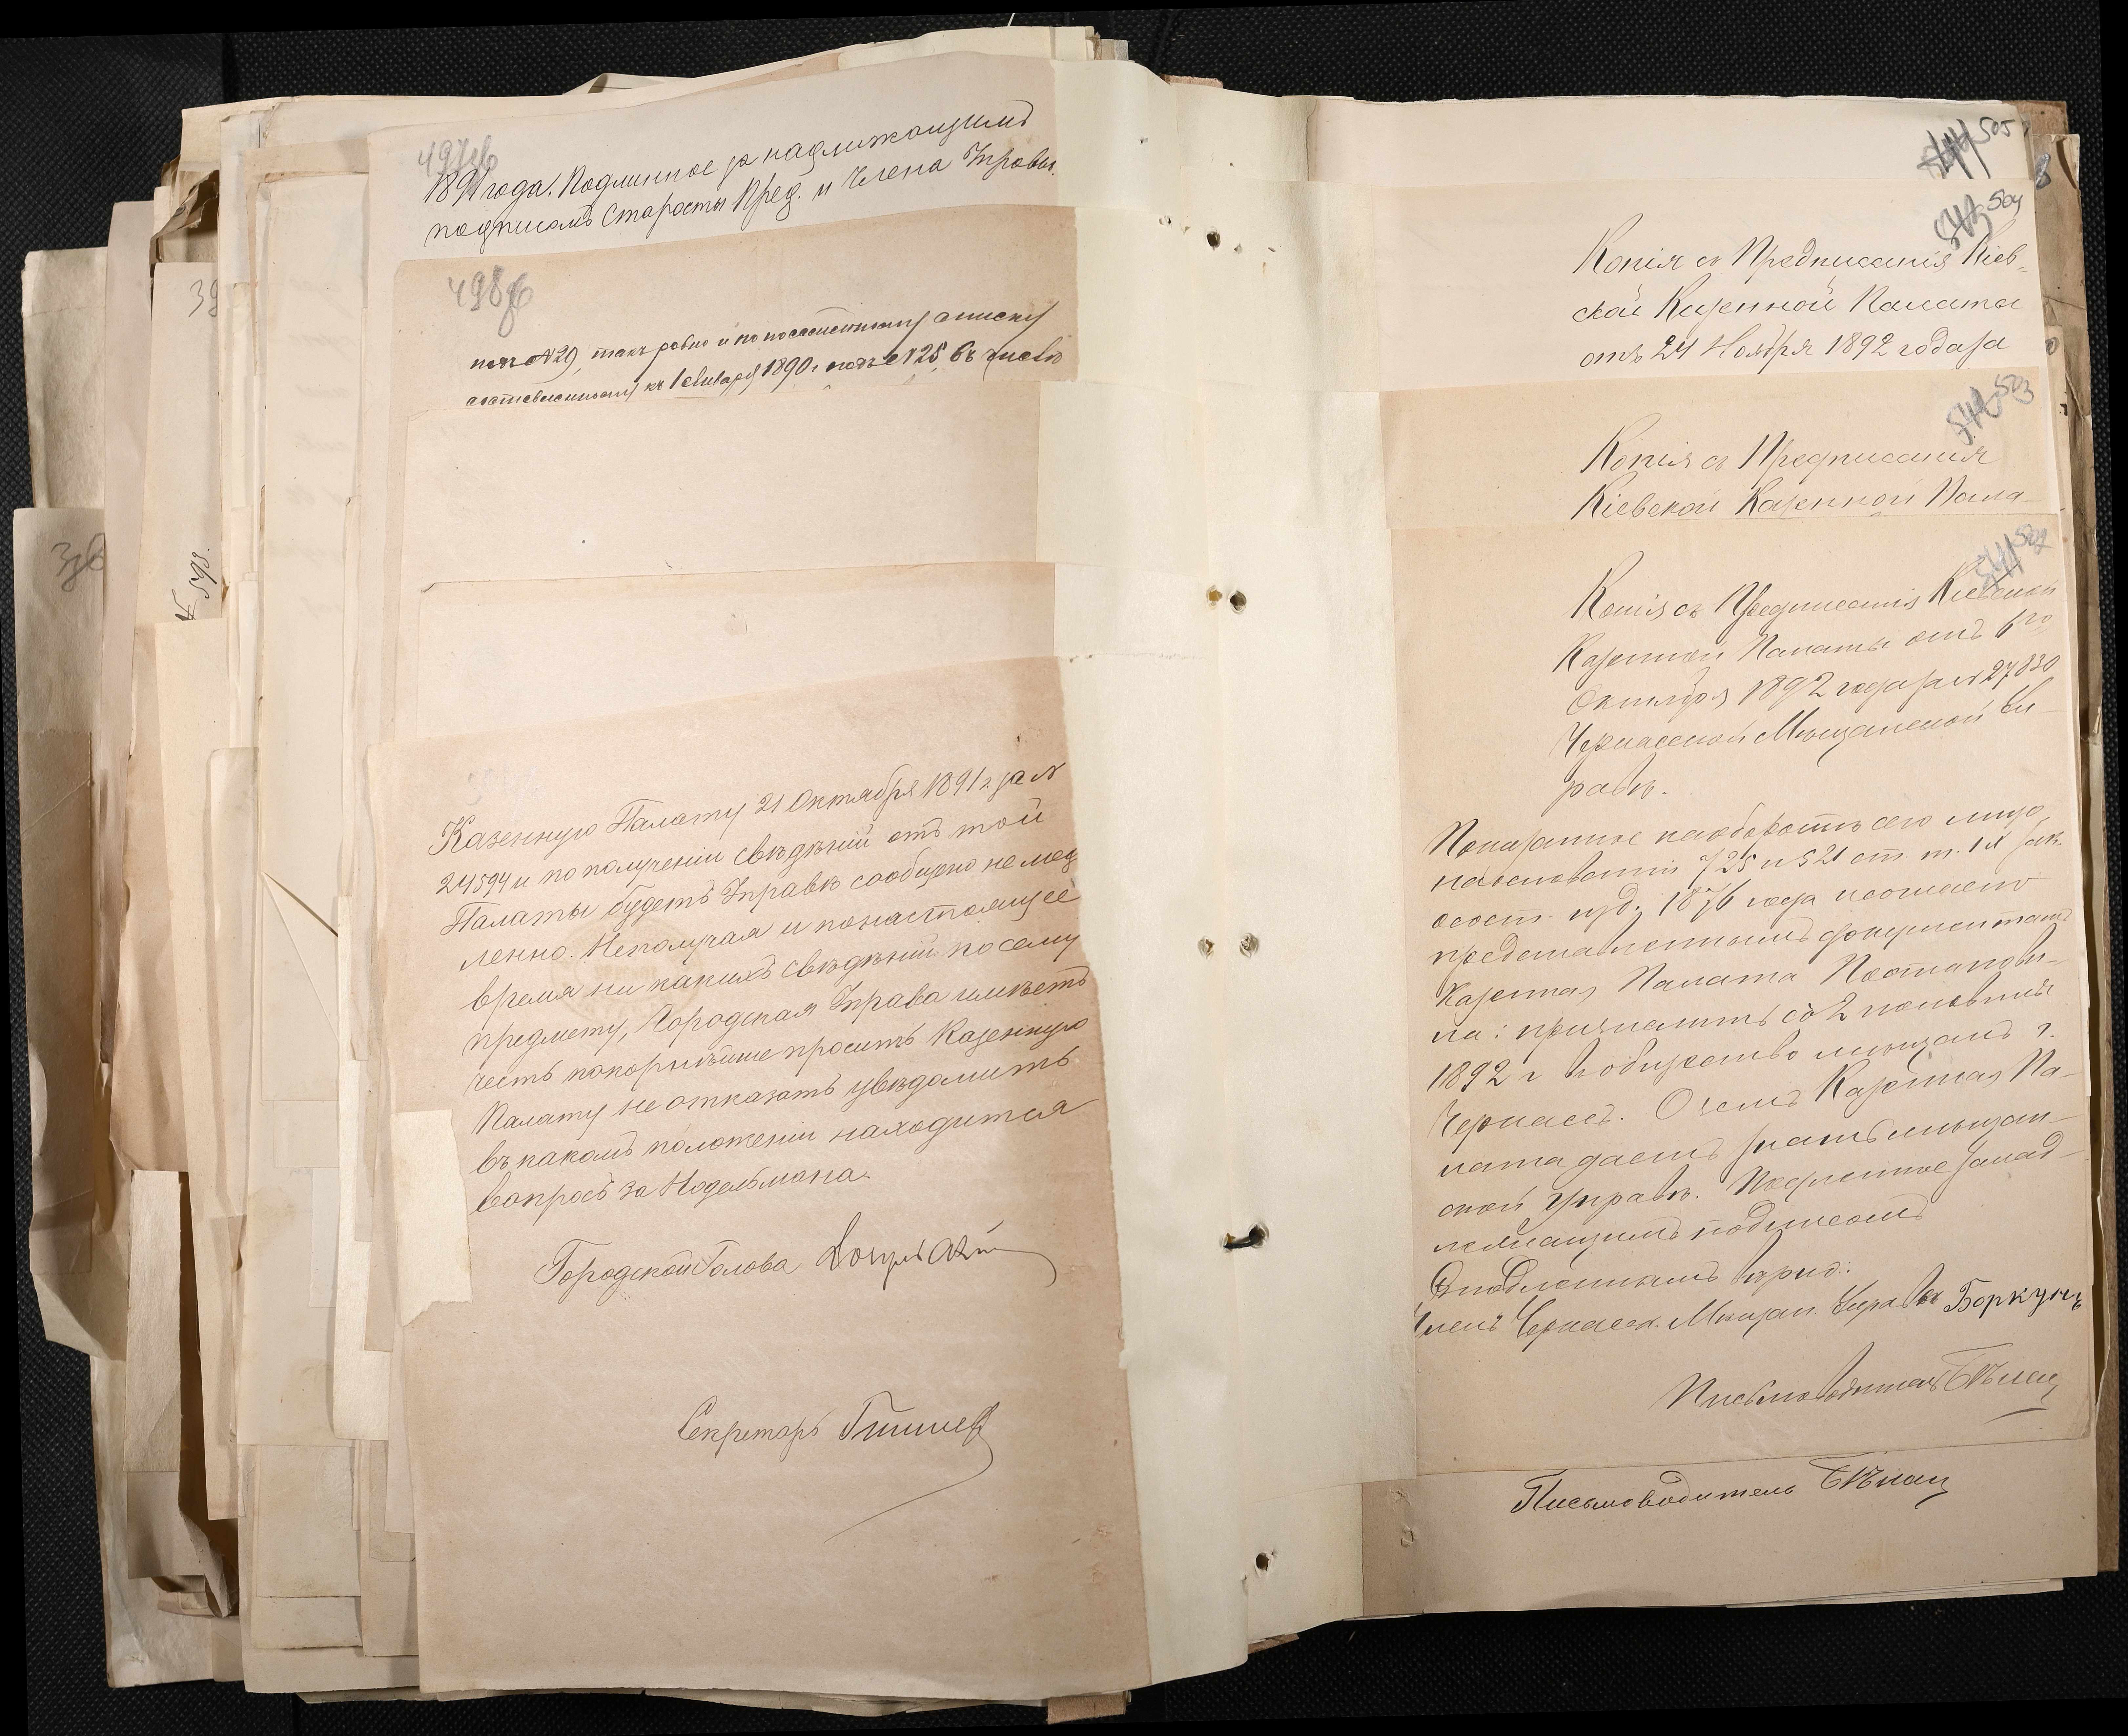 497об
1891 года. Подлинное за надлижащимъ
подписомъ Старосты Пред. и Члена Управы.
498об
подъ №29, такъ равно и по посемейному списку
составленному къ 1 Января 1890 г. подъ №25, въ числѣ
Казенную Палату 21 Октября 1891 г за №
24594 и по полученіи свѣдѣній отъ той
Палаты будетъ Управѣ сообщено немед
ленно. Неполучая и понастоящее
время ни какихъ свѣдѣній посему
предмету, Городская Управа имѣетъ
честь покорнѣйше просить Казенную
Палату не отказать увѣдомить
въ какомъ положеніи находится
вопросъ за Нодельмана.
Городской Голова
Секретарь
39
зоб
№ 598.
544 505
543 504
Копія съ Предписанія Кіев-
ской Казенной Палаты
отъ 24 Ноября 1892 года за
542 503
Копія съ Предписанія
Кіевской Казенной Пала-
541 502
Копія съ Предписанія Кіевской
Казенной Палаты отъ 6го
Октября 1892 года за № 27830
Черкасской Мѣщанской Уп-
равѣ.
Показанное наоборотѣ сего лицо,
на основаніи 725 и 521 ст. т. IX Зак.
о сост. изд. 1876 года и согласно
представленнымъ документамъ
Казенная Палата Постанови-
ла: причислить со 2 половины
1892 г въ общество мѣщанъ г.
Черкассъ. О чемъ Казенная Па-
лата даетъ знать мѣщан-
ской Управѣ. Подлинное за над-
лежащимъ подписомъ
Членъ Черкасск. Мѣщан. Управы Боркунъ
Письмоводитель Бѣлац
Письмоводитель Бѣлац